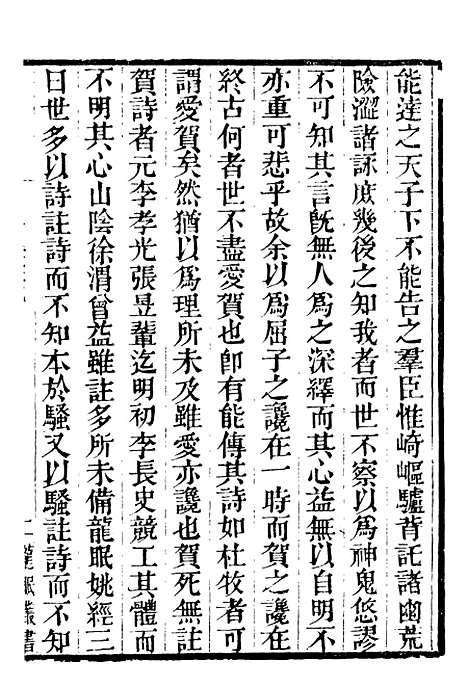 能達之天子下不能告之羣臣惟崎嶇驢背託諸幽荒
險澀諸詠庶幾後之知我者而世不察以爲神鬼悠謬
不可知其言旣無人爲之深繹而其心益無以自明不
亦重可悲乎故余以爲屈子之讒在一時而賀之讒在
終古何者世不盡愛賀也卽有能傳其詩如杜牧者可
謂愛賀矣然猶以爲理所未及雖愛亦讒也賀死無註
賀詩者元李孝光張昱輩迄明初李長史競工其體而
不明其心山陰徐渭曾益雖註多所未備龍眠姚經三
曰世多以詩註詩而不知本於騷又以騷註詩而不知
二 龍眠叢書